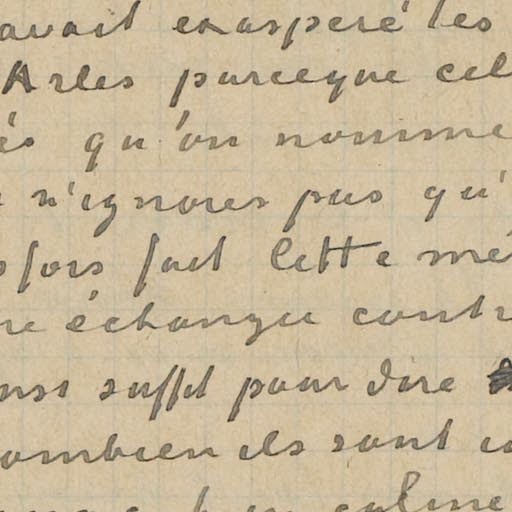 avait exasperé les
Arles parceque cel
és qu'on nomme
n'ignores pas qu'
fois fait cette mé
re échange contr
nsi suffit pour dire
ombien ils sont
calme